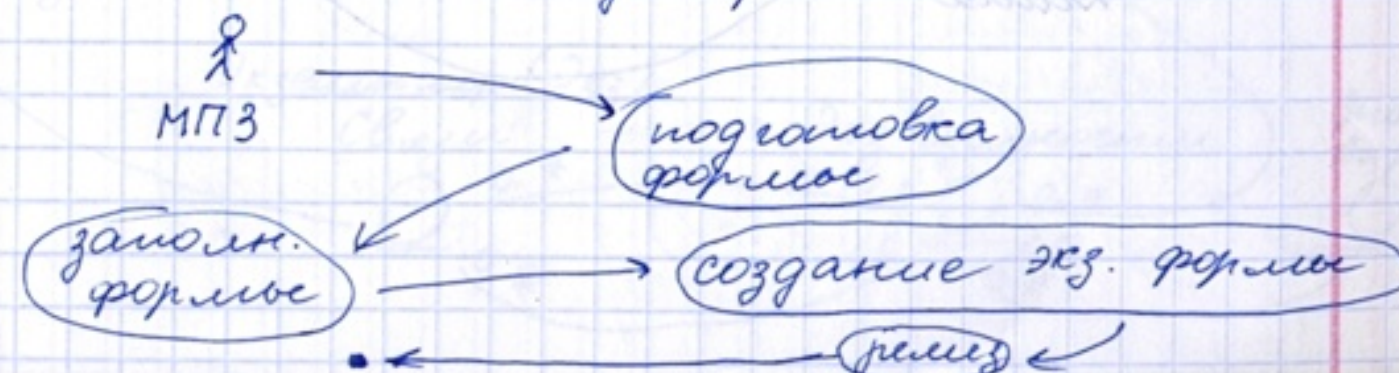 МПЗ
подготовка
формы
заполн.
формы
создание экз. формы
релиз